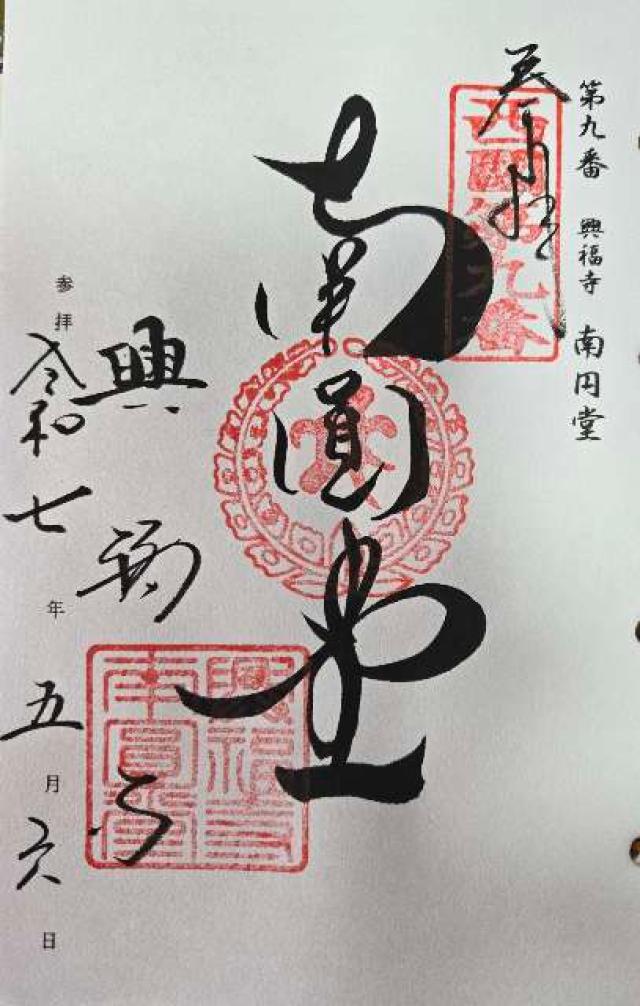 第九番 興福寺 南円堂
奉拝
西國第九番
南圓堂
興福寺
興福寺
南圓堂
参拝 令和七年五月六日